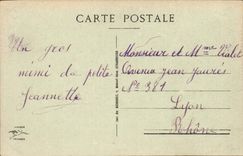 CARTE POSTALE
Un gros
mimi da petite
Jeannette
Monsieur et Mme Vialet
Avenue Jean Jaurès
No 381
Lyon
Rhône